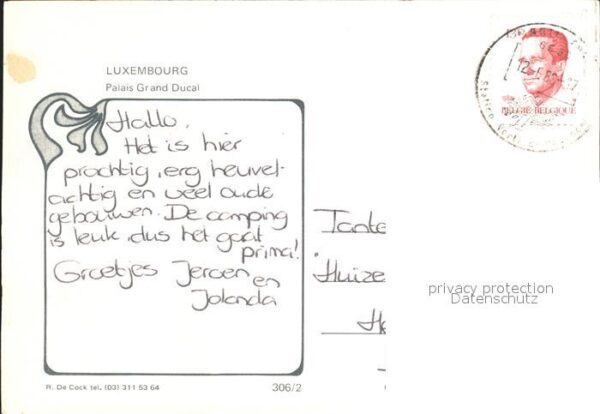 LUXEMBOURG
Palais Grand Ducal
Hallo,
Het is hier
prachtig, erg heuvel-
achtig en veel oude
gebouwen. De camping
is leuk, dus het gaat
prima!
Groetjes Jeroen
en
Jolanda
R. De Cock tel. (03) 311 53 64
306/2
BELGIË-BELGIQUE
Tante
Huize
privacy protection
Datenschutz